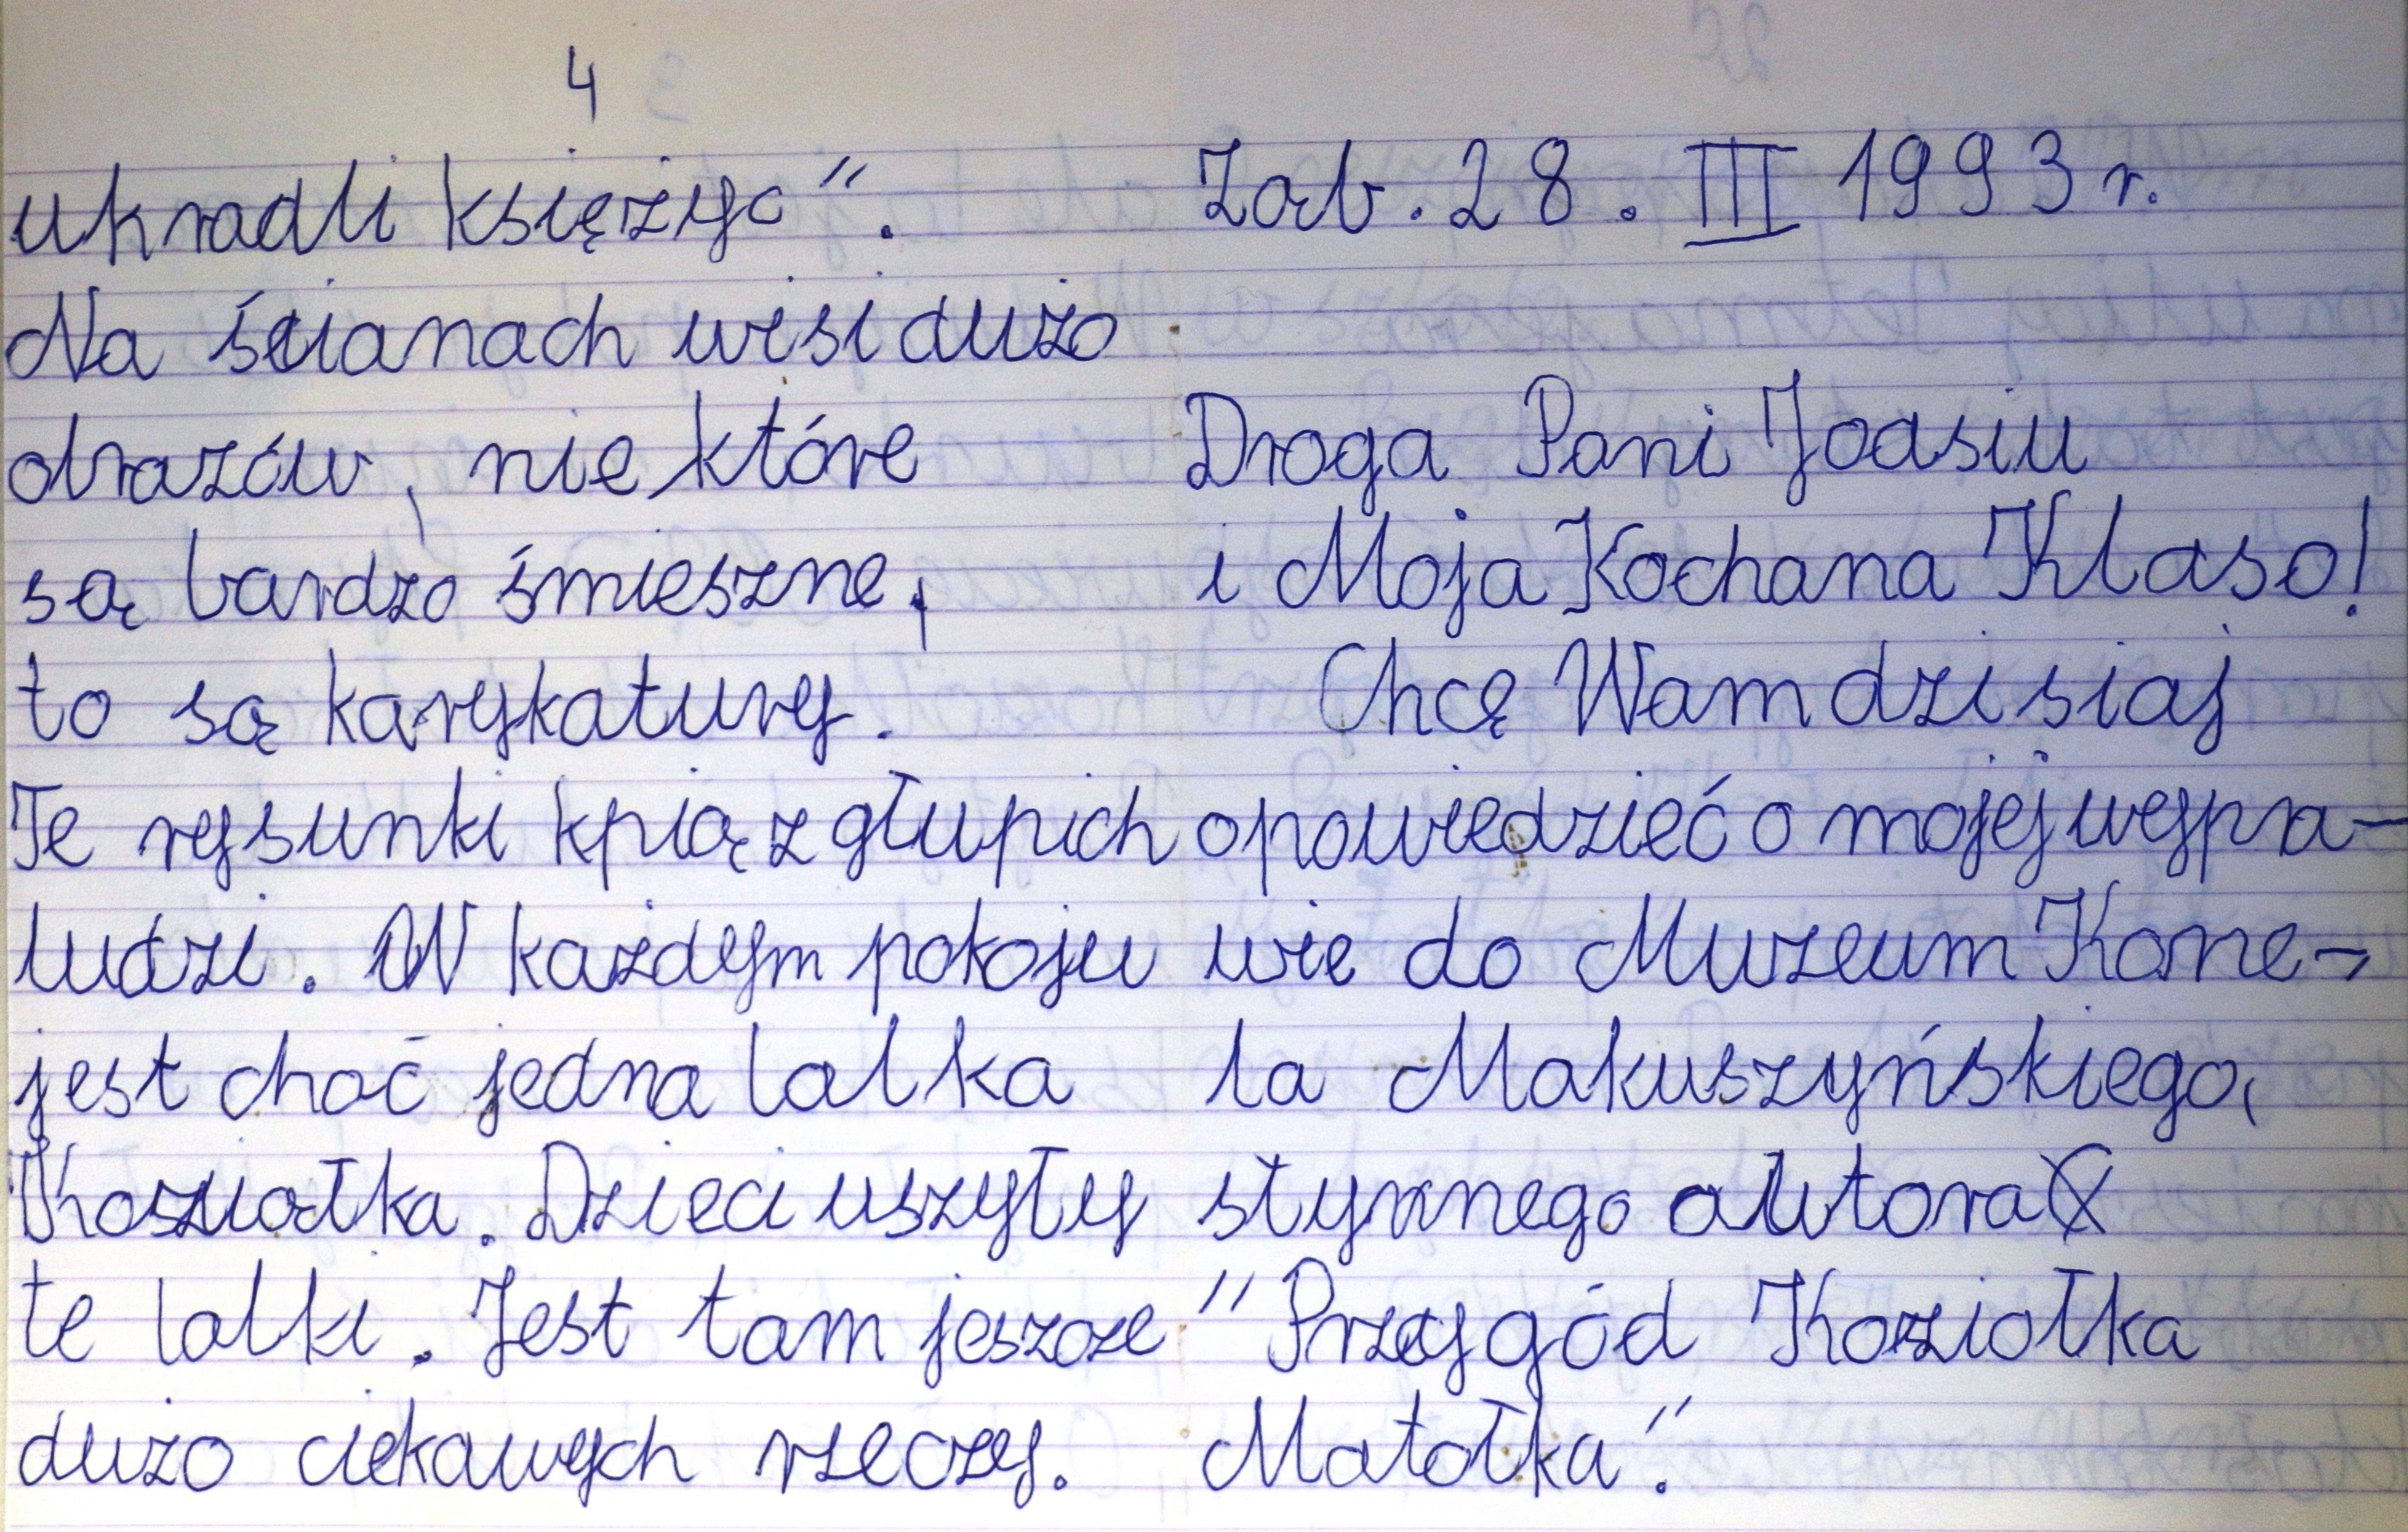 4
ukradli księżyc".
Na ścianach wisi dużo
obrazów, nie które
są bardzo śmieszne,
to są karykatury.
Te rysunki kpią z głupich
ludzi. W każdym pokoju
jest choć jedna lalka
Koziołka. Dzieci uszyły
te lalki. Jest tam jeszcze
dużo ciekawych rzeczy.
Zab. 28. III 1993 r.
Droga Pani Joasiu
i Moja Kochana Klaso!
Chcę Wam dzisiaj
opowiedzieć o mojej wypra-
wie do Muzeum Korne-
la Makuszyńskiego,
słynnego autora
"Przygód Koziołka
Matołka".